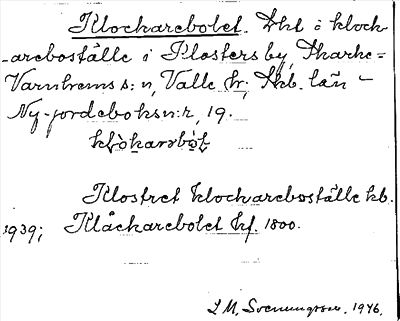 Klockarebolet. Dht å klock-
areboställe i Klosters by, Skarke-
Varnhems s:n, Valle hr, Skb. län -
Ny-jordeboksn:r, 19.
Klostret klockareboställe kb.
1939; Klåckarebolet hf. 1800.
L M, Svenungsson. 1946.